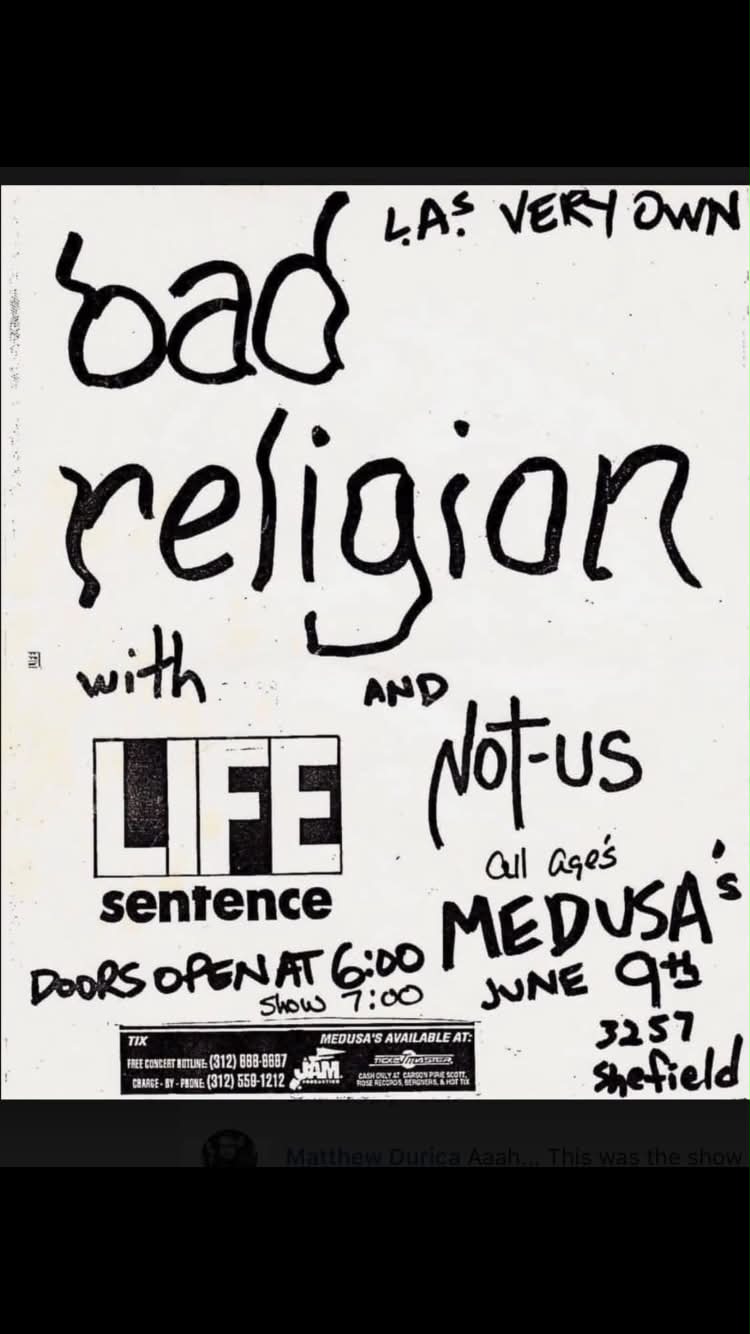 L.A.s VERY OWN
bad
religion
with
AND
LIFE
sentence
NOT-US
all age's
MEDUSA's
JUNE 9th
3257
Shefield
DOORS OPEN AT 6:00
Show 7:00
TIX
MEDUSA'S AVAILABLE AT:
FREE CONCERT HOTLINE: (312)
CHARGE-BY-PHONE: (312) 559-1212
JAM
PRODUCTIONS
TICKETMASTER
CASH ONLY AT CARSON PIRIE SCOTT,
ROSE RECORDS, BERGNERS, & HOT TIX
Matthew Durica Aaah... This was the show